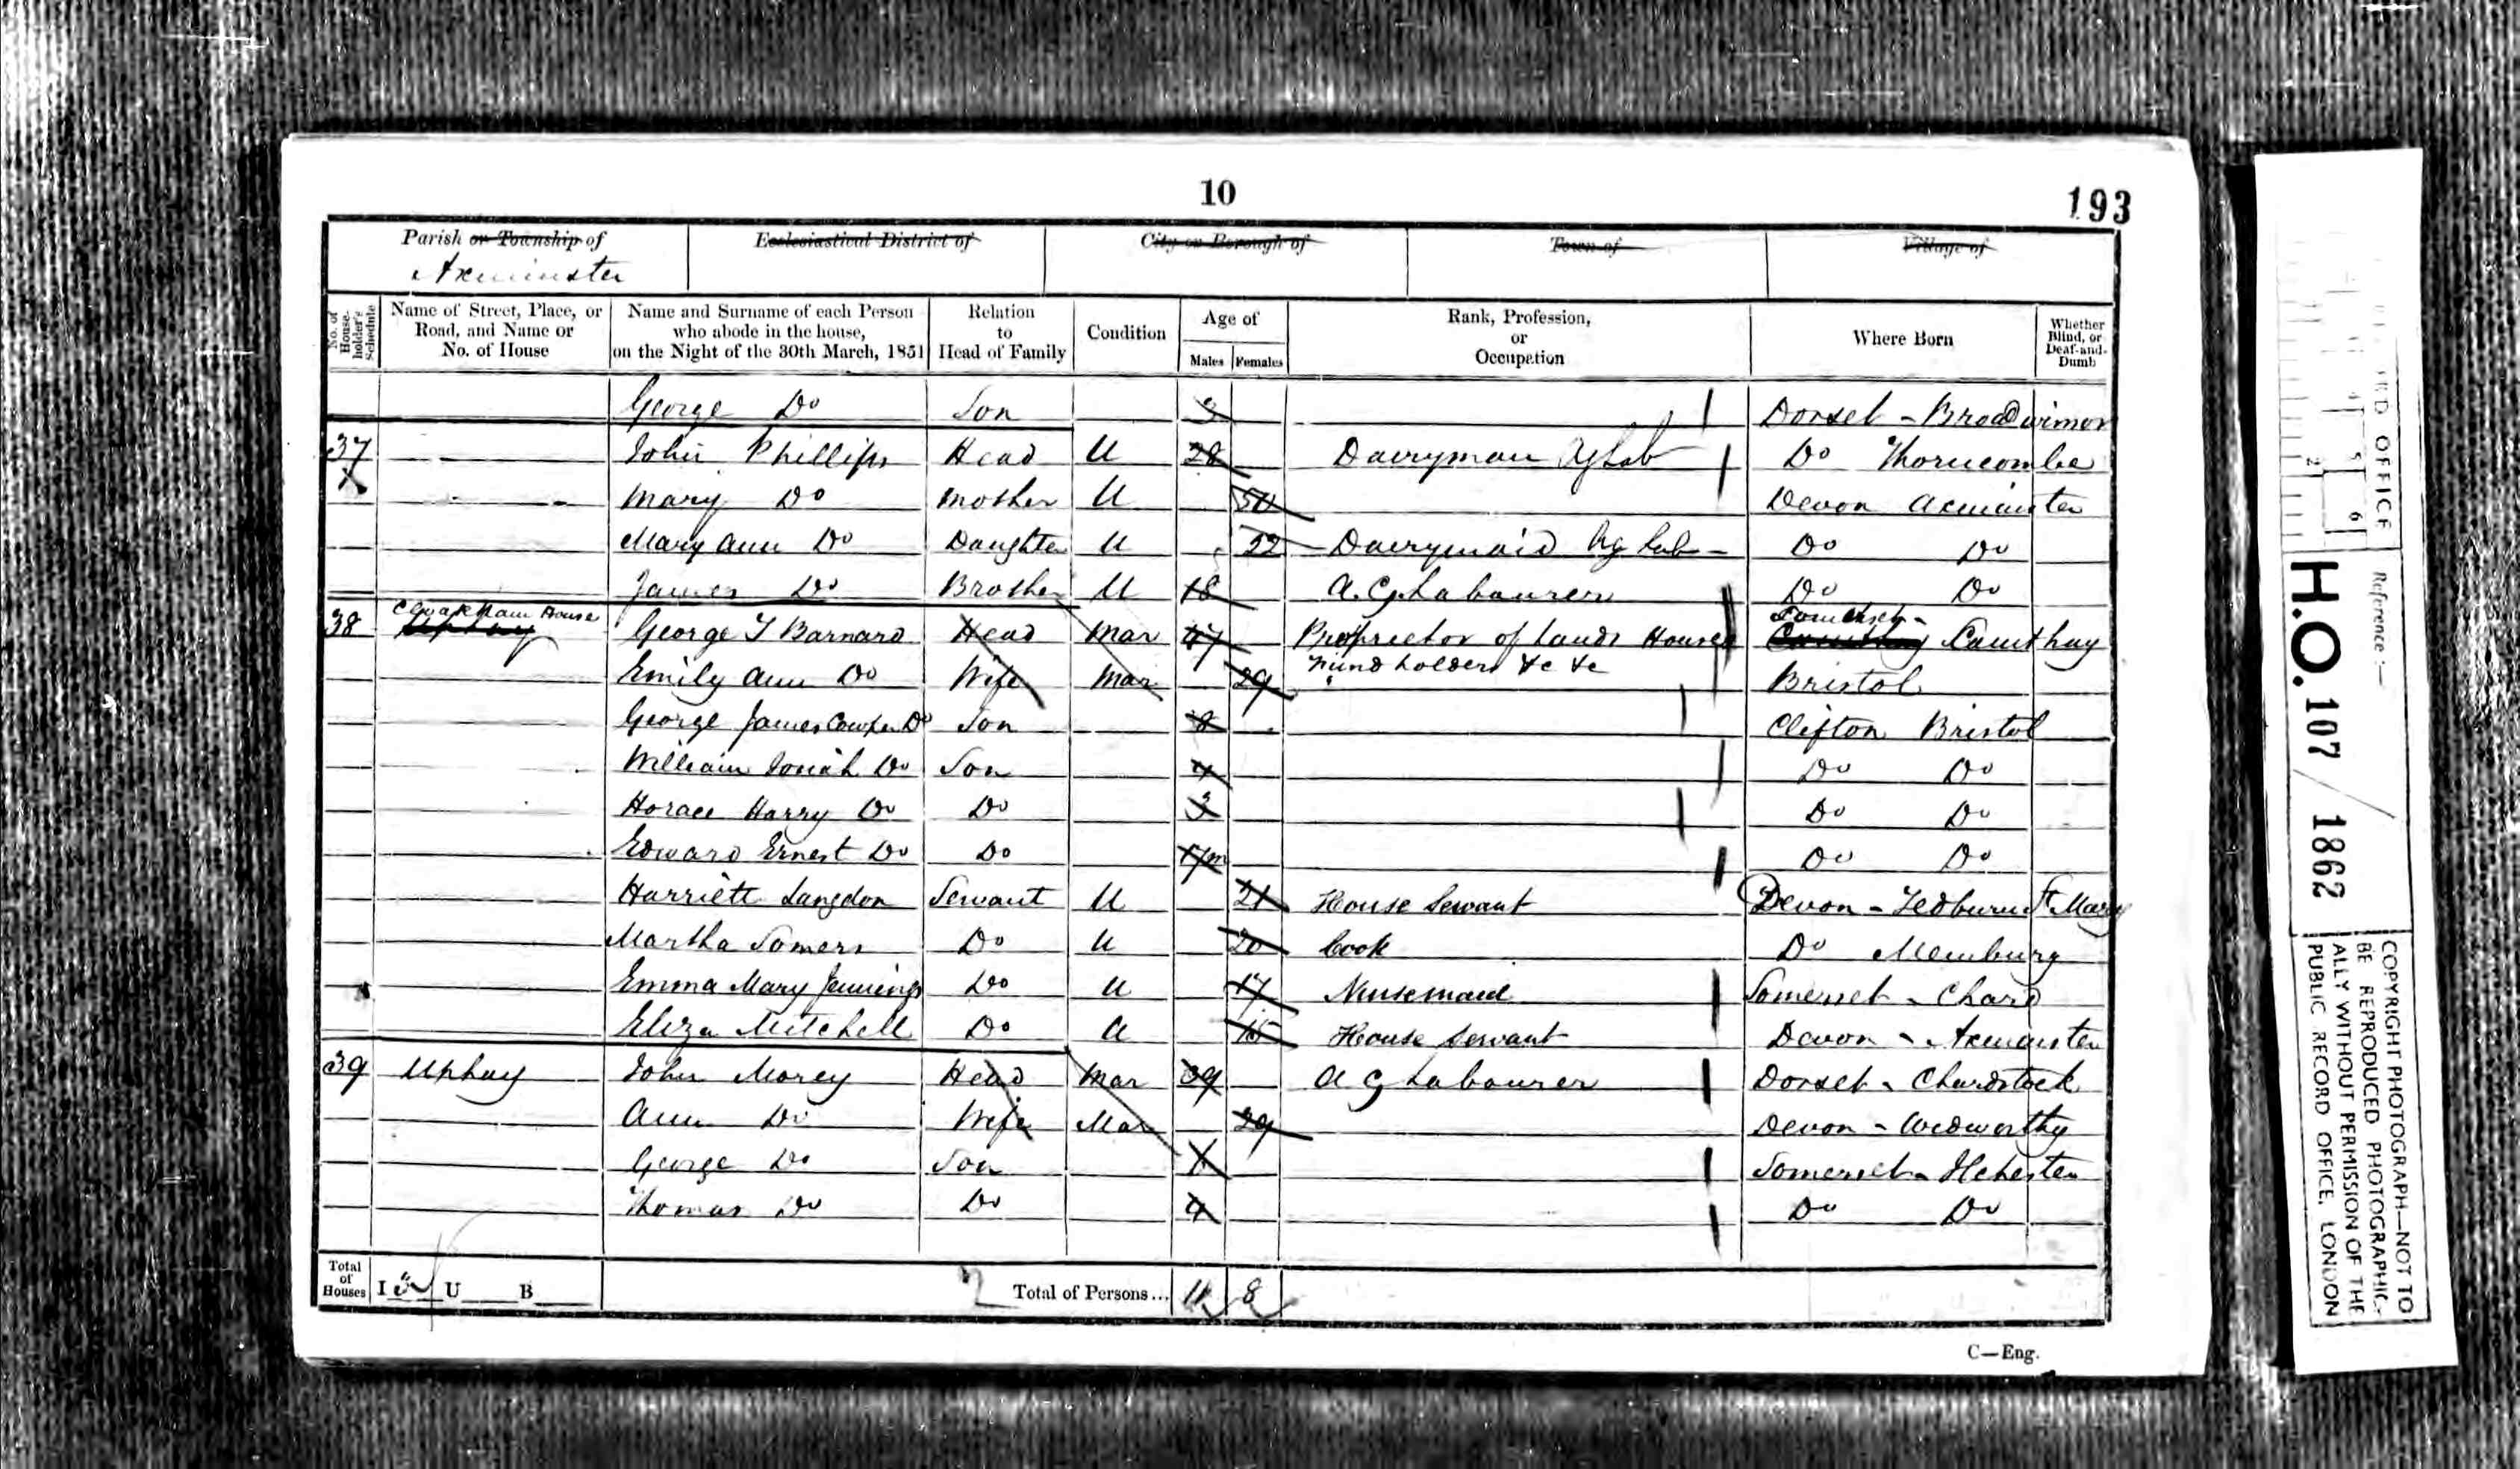 10
193
Parish or Township of
Axminster
Ecclesiastical District of
City or Borough of
Town of
Village of
No. of House-holder's Schedule
Name of Street, Place, or Road, and Name or No. of House
Name and Surname of each Person who abode in the house, on the Night of the 30th March, 1851
Relation to Head of Family
Condition
Age of
Males Females
Rank, Profession, or Occupation
Where Born
Whether Blind, or Deaf-and-Dumb
George Do Son 3 Dorset - Broadwinsor
37 John Phillips Head U 28 Dairyman Ag Lab Do Thorncombe
Mary Do Mother U 50 Devon Axminster
Mary Ann Do Daughter U 22 Dairymaid Ag Lab Do Do
James Do Brother U 18 A. G. Labourer Do Do
38 Cloakham House George T Barnard Head Mar 47 Proprietor of Lands Houses Somerset Lamthay
Emily Ann Do Wife Mar 29 Fundholder &c &c Bristol
George James Cowper Do Son 8 Clifton Bristol
William Josiah Do Son 4 Do Do
Horace Harry Do Do 3 Do Do
Edward Ernest Do Do Do Do
Harriett Langdon Servant U 21 House Servant Devon - Tedburn St Mary
Martha Somers Do U 20 Cook Do Membury
Emma Mary Jennings Do U 17 Nursemaid Somerset - Chard
Eliza Mitchell Do U 15 House Servant Devon - Axminster
39 Uphay John Morey Head Mar 39 A G Labourer Dorset - Chardstock
Ann Do Wife Mar 29 Devon - Widworthy
George Do Son Somerset - Ilchester
Thomas Do Do 4 Do Do
Total of Houses I 3 U B
2 Total of Persons... 11 8
C—Eng.
PUBLIC RECORD OFFICE
Reference :-
H.O. 107 / 1862
COPYRIGHT PHOTOGRAPH—NOT TO
BE REPRODUCED PHOTOGRAPHIC-
ALLY WITHOUT PERMISSION OF THE
PUBLIC RECORD OFFICE, LONDON